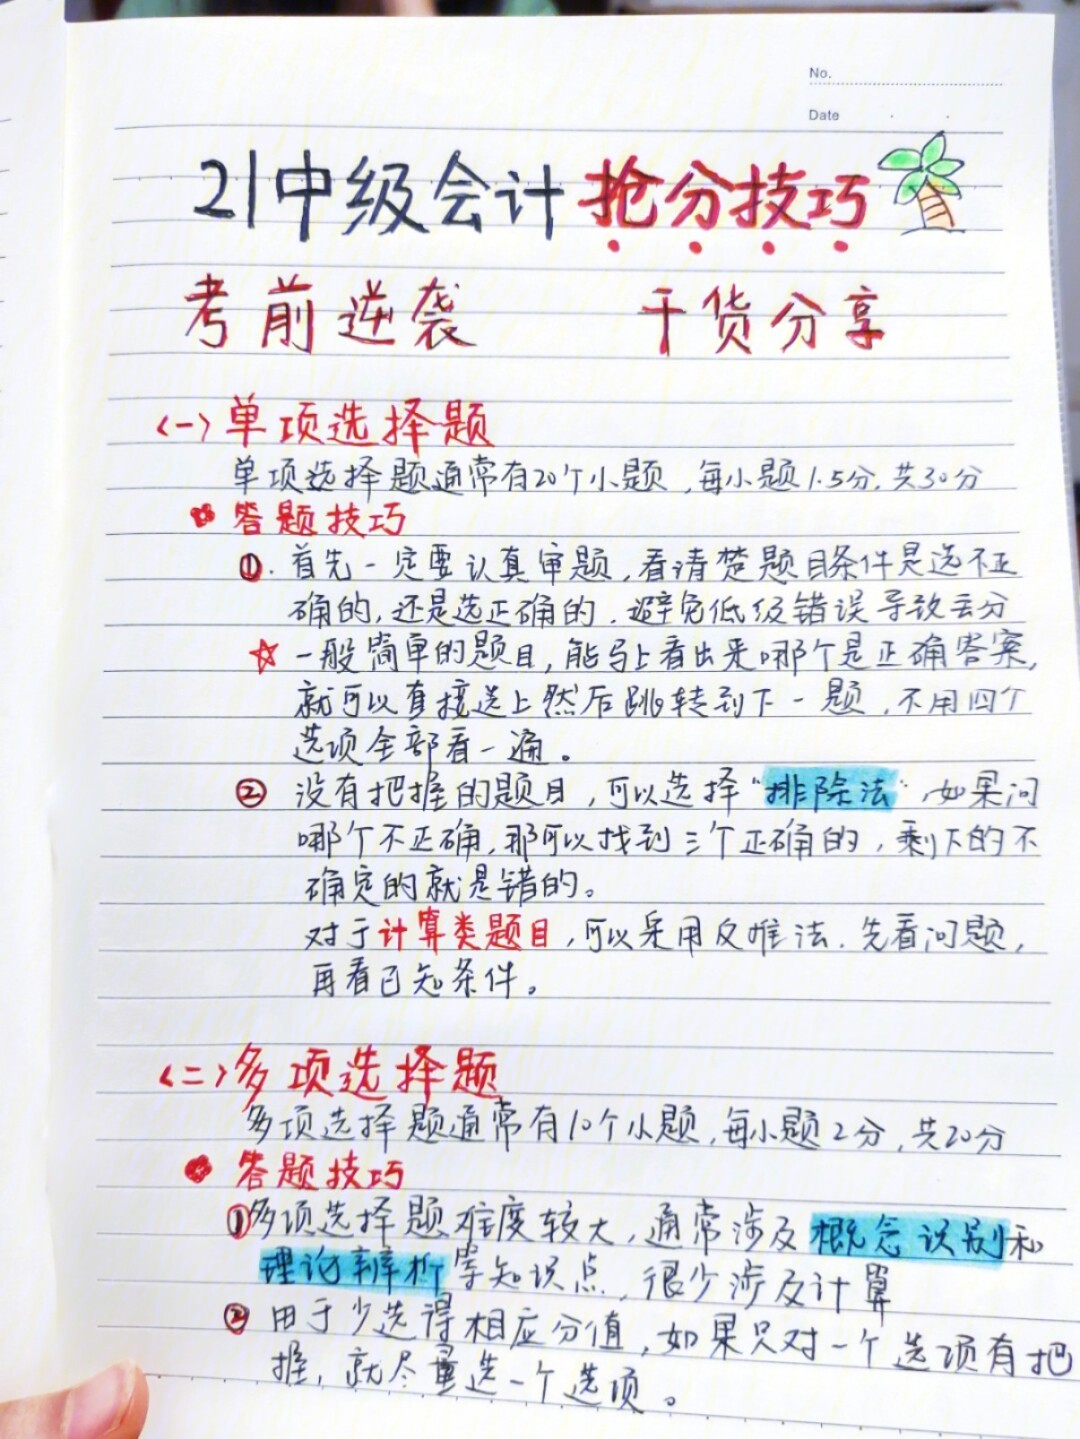 No.
Date
21中级会计抢分技巧
考前逆袭 干货分享
(一)单项选择题
单项选择题通常有20个小题,每小题1.5分,共30分
答题技巧
①.首先一定要认真审题,看请楚题目条件是选不正
确的,还是选正确的.避免低级错误导致丢分
☆一般简单的题目,能马上看出来哪个是正确答案,
就可以直接选上然后跳转到下一题,不用四个
选项全部看一遍。
②没有把握的题目,可以选择"排除法",如果问
哪个不正确,那可以找到三个正确的,剩下的不
确定的就是错的。
对于计算类题目,可以采用反推法.先看问题,
再看已知条件。
(二)多项选择题
多项选择题通常有10个小题,每小题2分,共20分
答题技巧
①多项选择题难度较大,通常涉及概念识别和
理论辨析等知识点,很少涉及计算
②用于少选得相应分值,如果只对一个选项有把
握,就尽量选一个选项。